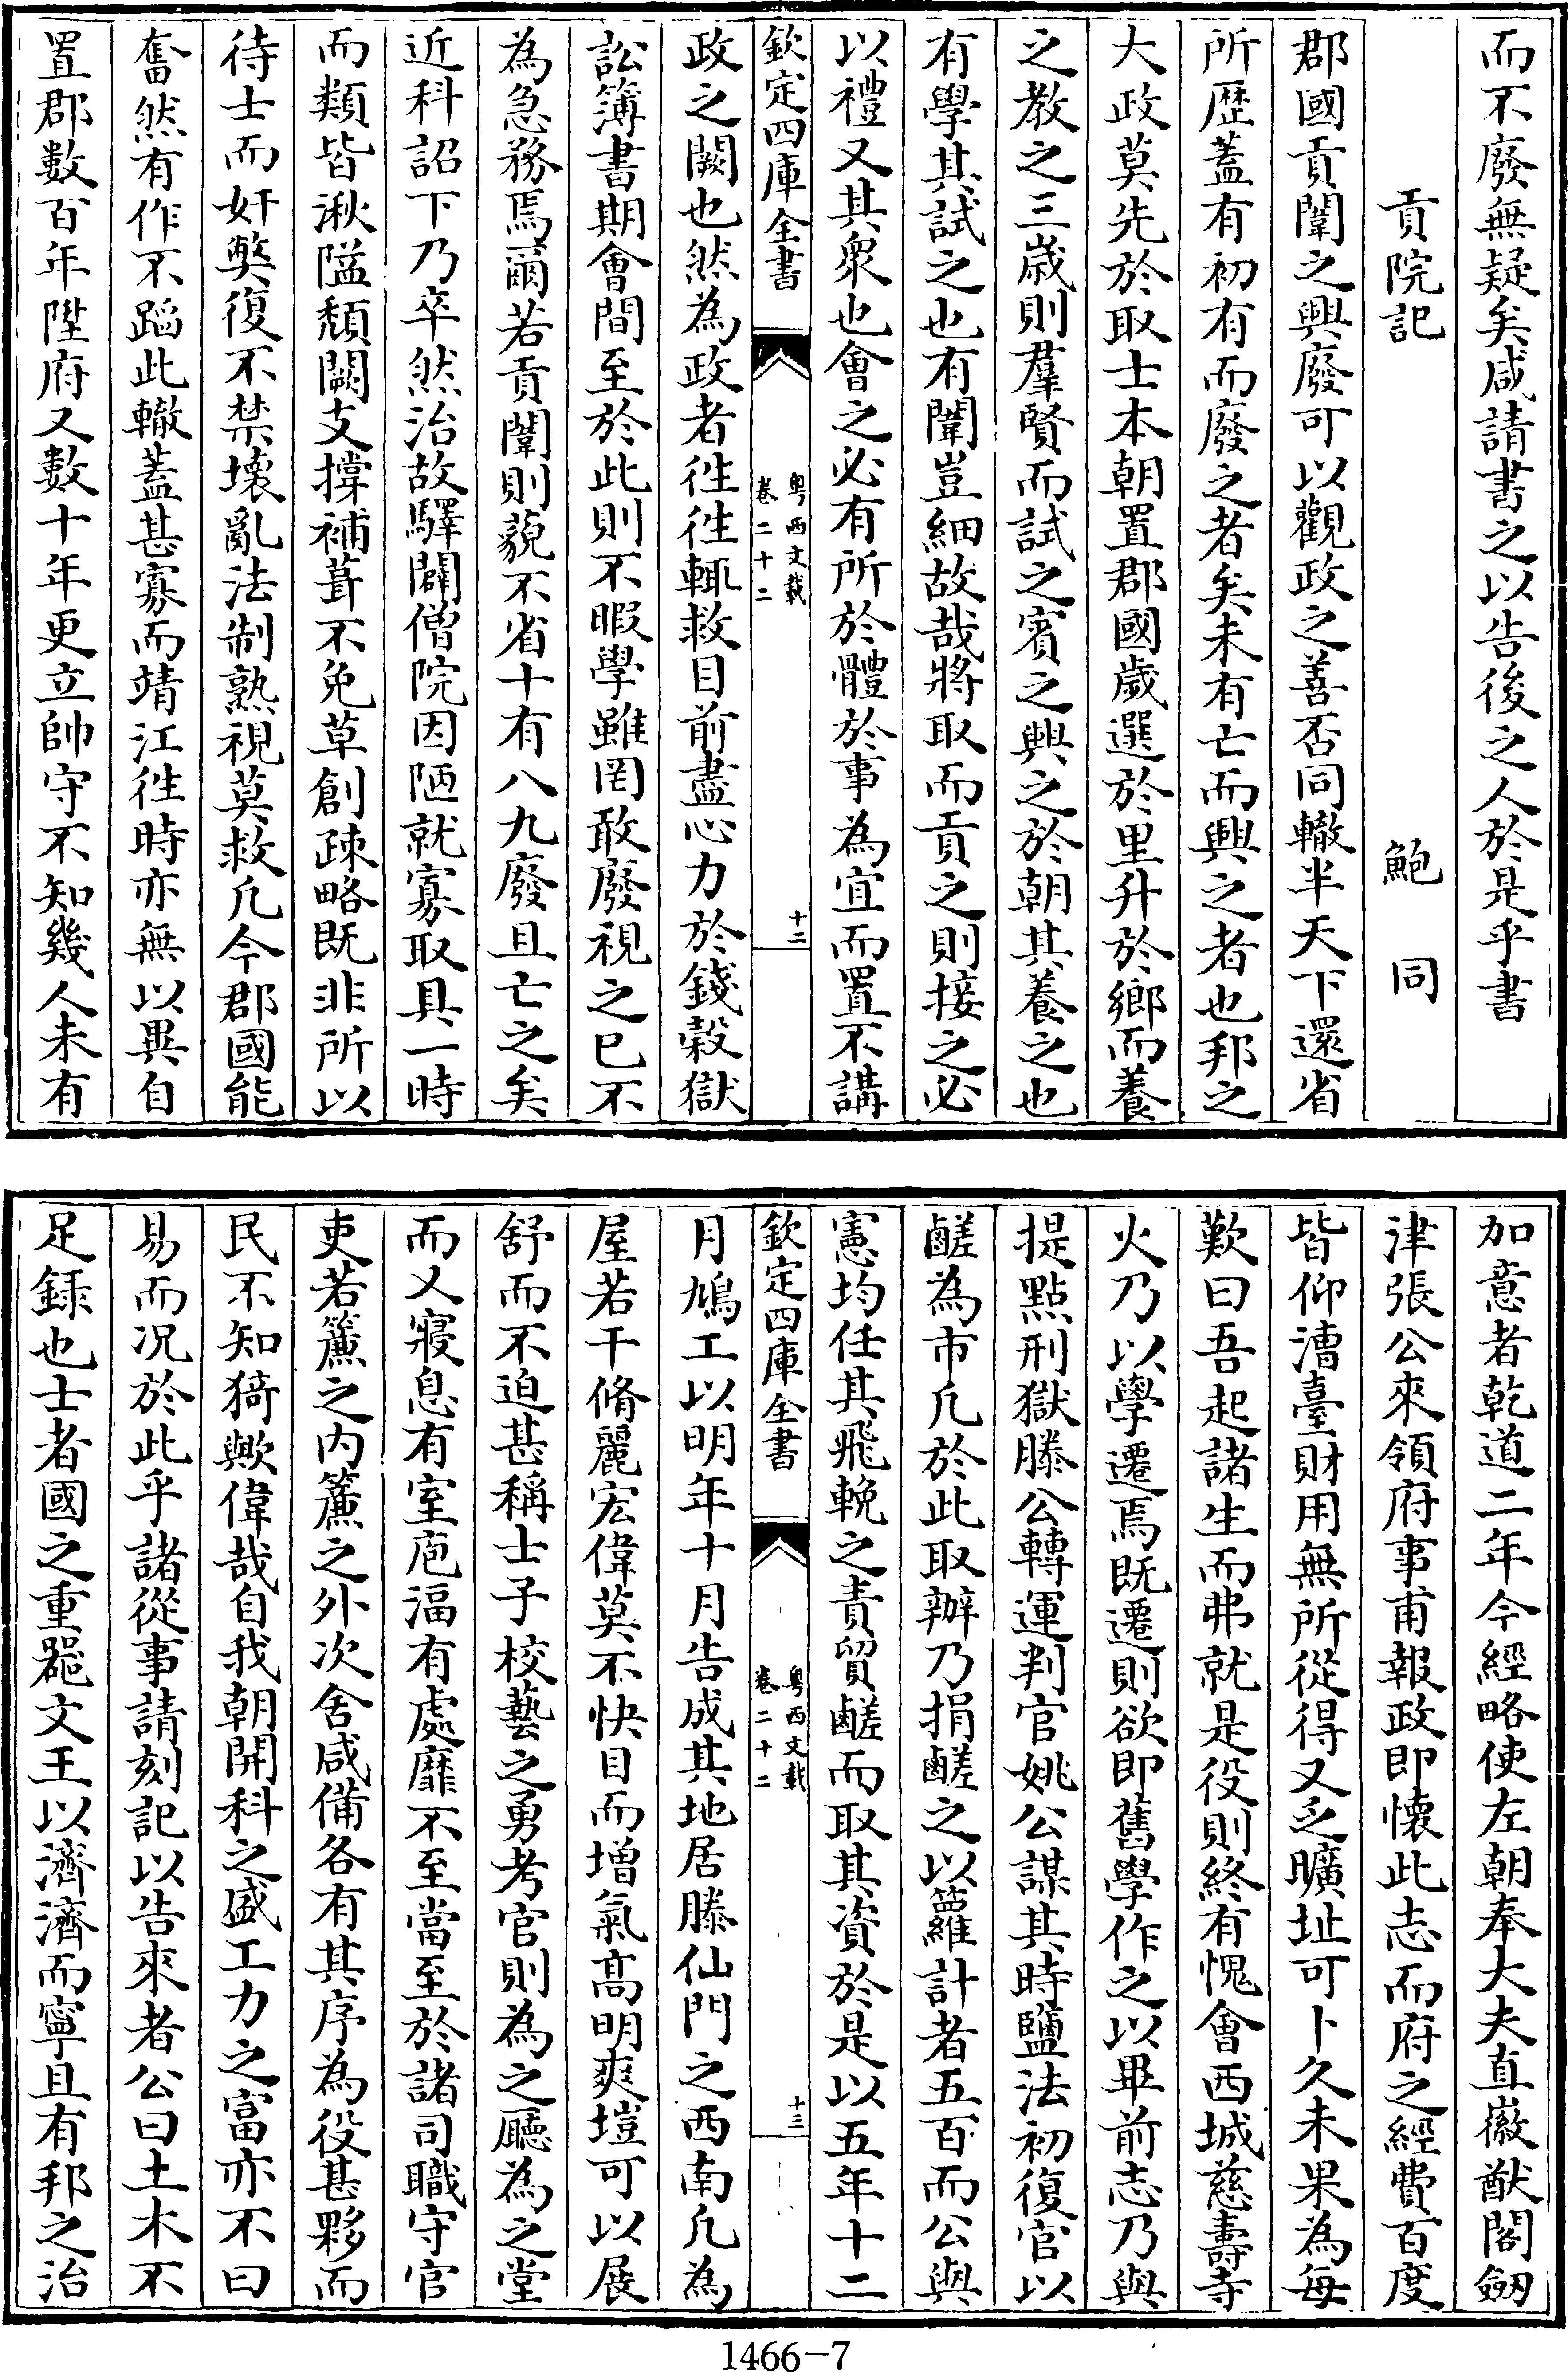 而不廢無疑矣咸請書之以告後之人於是乎書
貢院記　鮑　同
郡國貢闈之興廢可以觀政之善否同轍半天下還省
所歴蓋有初有而廢之者矣未有亡而興之者也邦之
大政莫先於取士本朝置郡國歲選於里升於鄉而養
之教之三歲則羣賢而試之賓之興之於朝其養之也
有學其試之也有闈豈細故哉將取而貢之則接之必
以禮又其衆也會之必有所於體於事為宜而置不講
欽定四庫全書
粤西文載
卷二十二
十二
政之闕也然為政者徃徃輒救目前盡心力於錢榖獄
訟簿書期會間至於此則不暇學雖罔敢廢視之已不
為急務焉爾若貢闈則藐不省十有八九廢且亡之矣
近科詔下乃卒然治故驛闢僧院因陋就寡取具一時
而類皆湫隘頽闕支撐補葺不免草創疎略既非所以
待士而奸獘復不禁壊亂法制熟視莫救凡今郡國能
奮然有作不蹈此轍蓋甚寡而靖江徃時亦無以異自
置郡數百年陞府又數十年更立帥守不知幾人未有
加意者乾道二年今經略使左朝奉大夫直徽猷閣劔
津張公來領府事甫報政即懷此志而府之經費百度
皆仰漕臺財用無所從得又乏曠址可卜久未果為每
歎曰吾起諸生而弗就是役則終有愧會西城慈壽寺
火乃以學遷焉既遷則欲即舊學作之以畢前志乃與
提點刑獄滕公轉運判官姚公謀其時鹽法初復官以
鹺為市凡於此取辦乃捐鹺之以籮計者五百而公與
憲均任其飛輓之責貿鹺而取其資於是以五年十二
欽定四庫全書
粤西文載
卷二十二
十三
月鳩工以明年十月告成其地居滕仙門之西南凡為
屋若干脩麗宏偉莫不快目而增氣髙明爽塏可以展
舒而不迫甚稱士子校藝之勇考官則為之廳為之堂
而又寢息有室庖湢有處靡不至當至於諸司職守官
吏若簾之内簾之外次舍咸備各有其序為役甚夥而
民不知猗歟偉哉自我朝開科之盛工力之富亦不曰
易而况於此乎諸從事請刻記以告來者公曰土木不
足録也士者國之重噐文王以濟濟而寧且有邦之治
1466-7